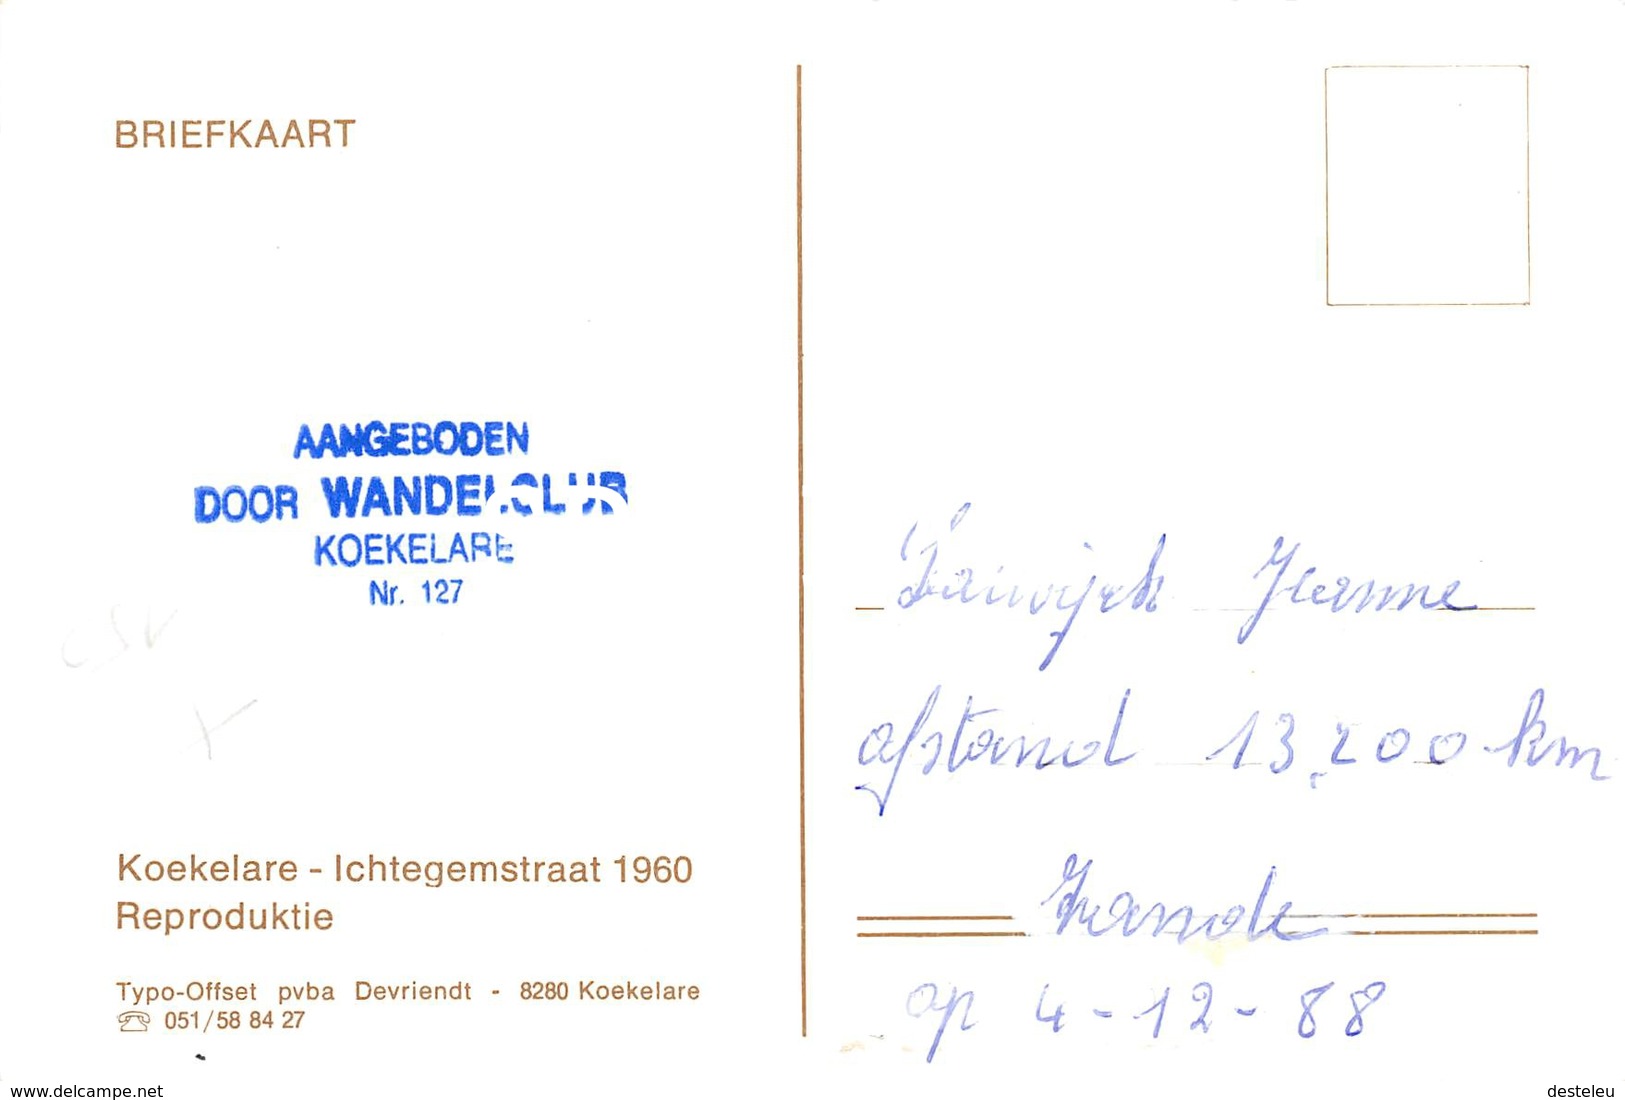 BRIEFKAART
AANGEBODEN
DOOR WANDELCLUB
KOEKELARE
Nr. 127
Koekelare - Ichtegemstraat 1960
Reproduktie
Typo-Offset pvba Devriendt - 8280 Koekelare
☎ 051/58 84 27
Jeanne
afstand 13.200 km
Zande
op 4-12-88
www.delcampe.net
desteleu